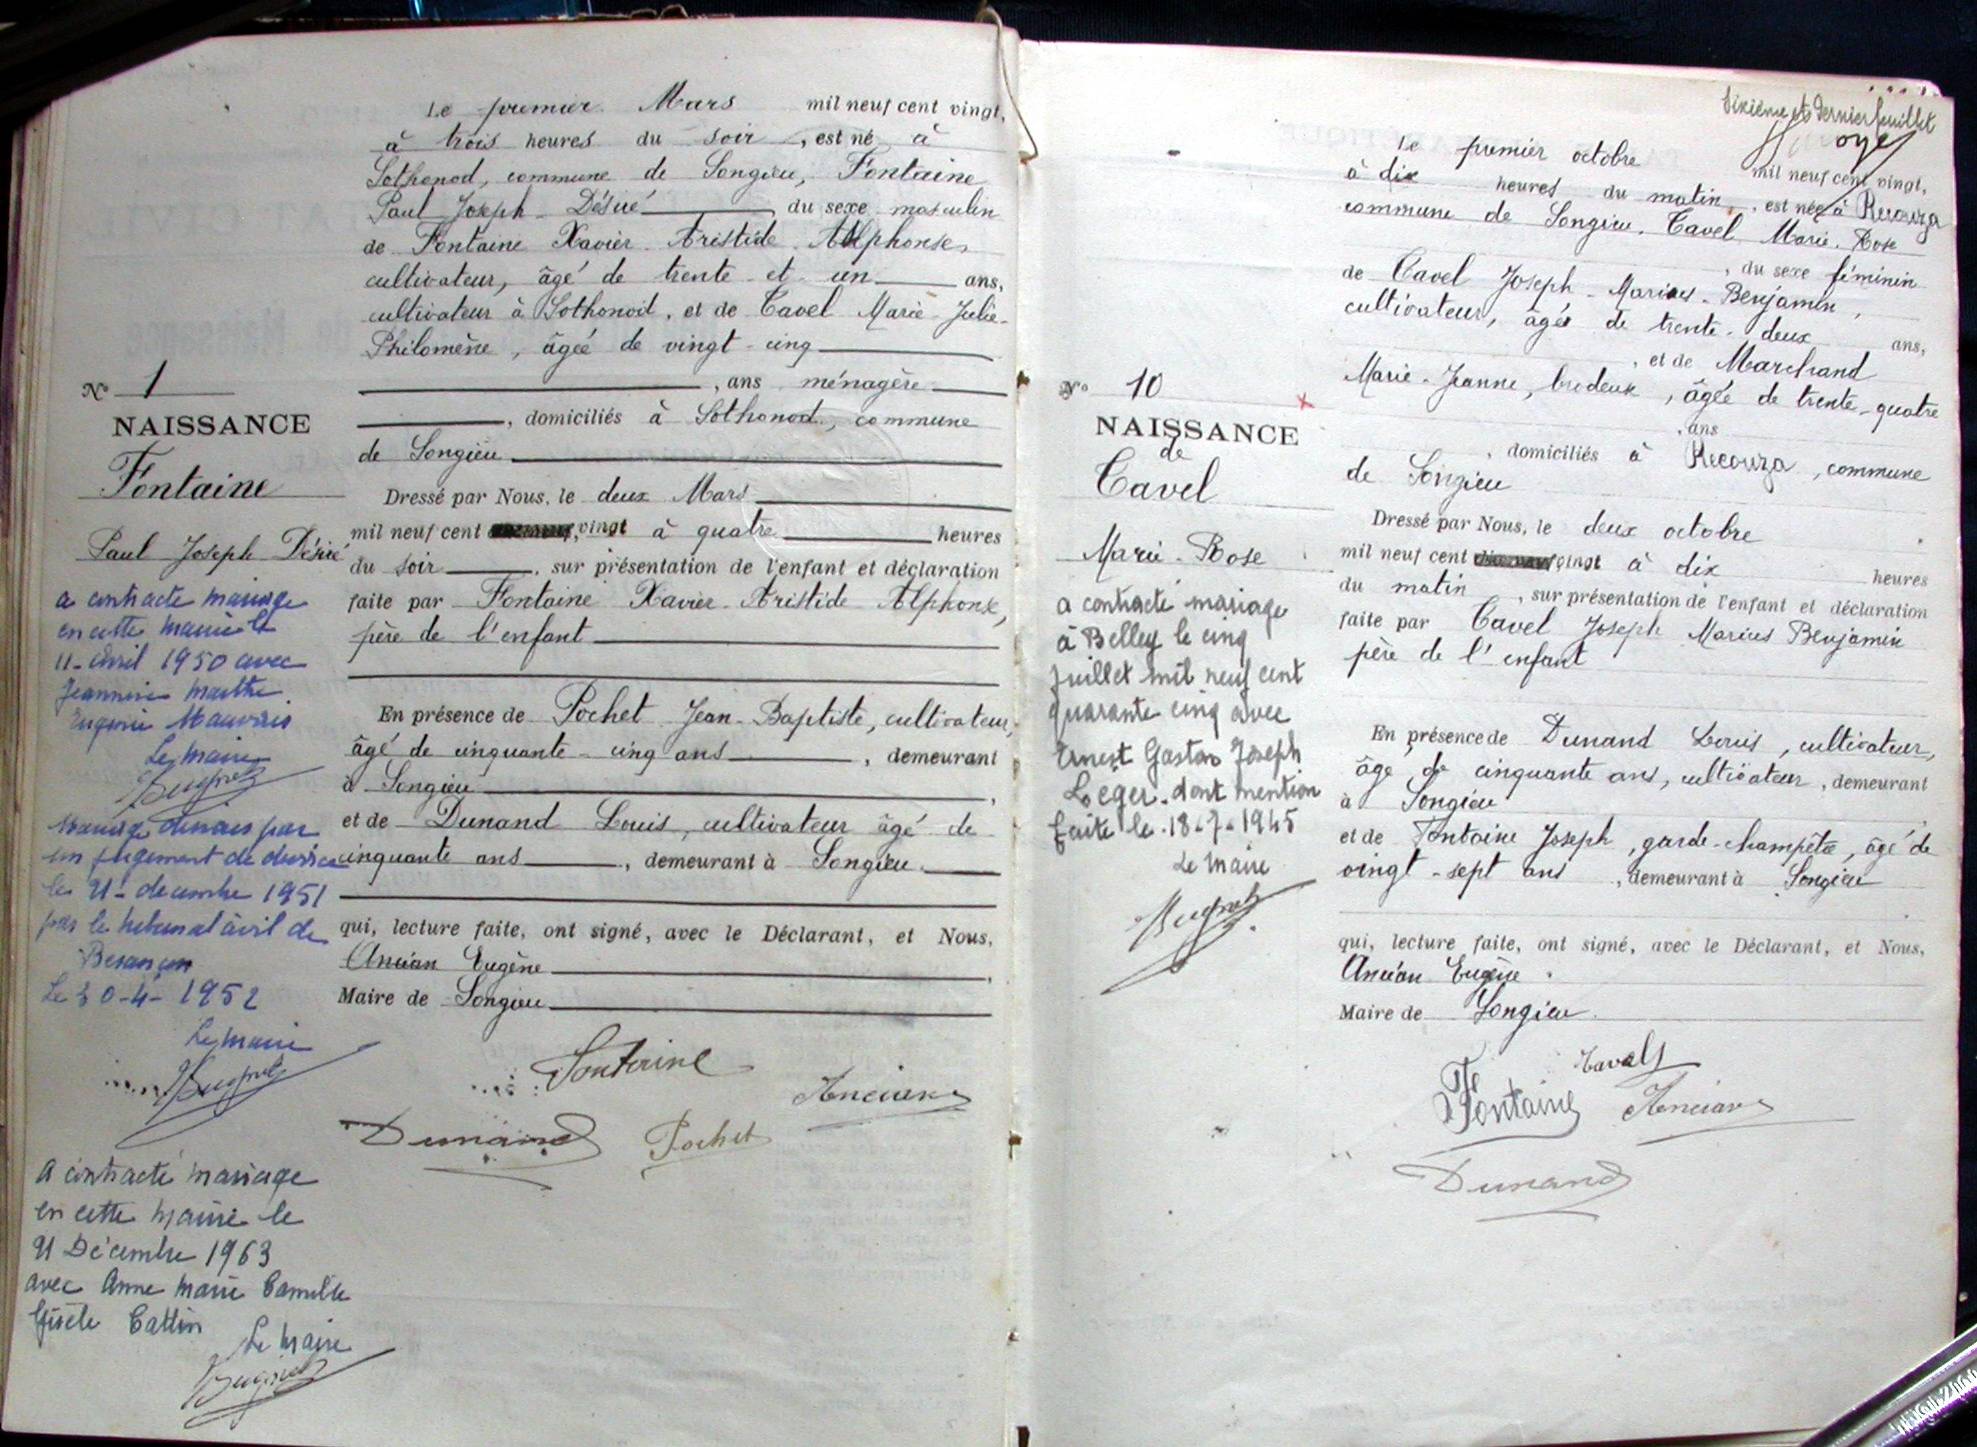 Le premier Mars mil neuf cent vingt,
à trois heures du soir, est né à
Sothonod, commune de Songieu, Fontaine
Paul Joseph Désiré, du sexe masculin
de Fontaine Xavier Aristide Alphonse,
cultivateur, âgé de trente et un ans,
cultivateur à Sothonod, et de Tavel Marie-Julie-
Philomène, âgée de vingt-cinq
, ans ménagère
, domiciliés à Sothonod, commune
de Songieu
Dressé par Nous, le deux Mars
mil neuf cent vingt à quatre heures
du soir, sur présentation de l'enfant et déclaration
faite par Fontaine Xavier Aristide Alphonse,
père de l'enfant
En présence de Pochet Jean-Baptiste, cultivateur,
âgé de cinquante-cinq ans, demeurant
à Songieu,
et de Dunand Louis, cultivateur âgé de
cinquante ans, demeurant à Songieu.
qui, lecture faite, ont signé, avec le Déclarant, et Nous,
Ancian Eugène,
Maire de Songieu
Fontaine
Ancian
Dunand Pochet
N° 1
NAISSANCE
Fontaine
Paul Joseph Désiré
a contracté mariage
en cette mairie le
11 avril 1950 avec
Jeannine Marthe
Eugénie Mauvais
Le Maire
Mariage dissous par
un jugement de divorce
le 21 décembre 1951
par le tribunal civil de
Besançon
Le 30-4-1952
Le Maire
A contracté mariage
en cette Mairie le
21 Décembre 1963
avec Anne Marie Camille
Gisèle Cattin
Le Maire
Sixième et Dernier feuillet
Le premier octobre mil neuf cent vingt,
à dix heures du matin, est née à Recouza
commune de Songieu. Tavel Marie-Rose
, du sexe féminin
de Tavel Joseph-Marius-Benjamin,
cultivateur, âgé de trente-deux ans,
, et de Marchand
Marie-Jeanne, brodeuse, âgée de trente-quatre
, ans
, domiciliés à Recouza, commune
de Songieu
Dressé par Nous, le deux octobre
mil neuf cent vingt à dix heures
du matin, sur présentation de l'enfant et déclaration
faite par Tavel Joseph Marius Benjamin
père de l'enfant
En présence de Dunand Louis, cultivateur,
âgé de cinquante ans, cultivateur, demeurant
à Songieu
et de Fontaine Joseph, garde-champêtre, âgé de
vingt-sept ans, demeurant à Songieu
qui, lecture faite, ont signé, avec le Déclarant, et Nous,
Ancian Eugène.
Maire de Songieu.
Tavel
Fontaine Ancian
Dunand
N° 10
NAISSANCE
de
Tavel
Marie-Rose
a contracté mariage
à Belley le cinq
juillet mil neuf cent
quarante cinq avec
Ernest Gaston Joseph
Léger. dont mention
faite le 18-7-1945
Le Maire